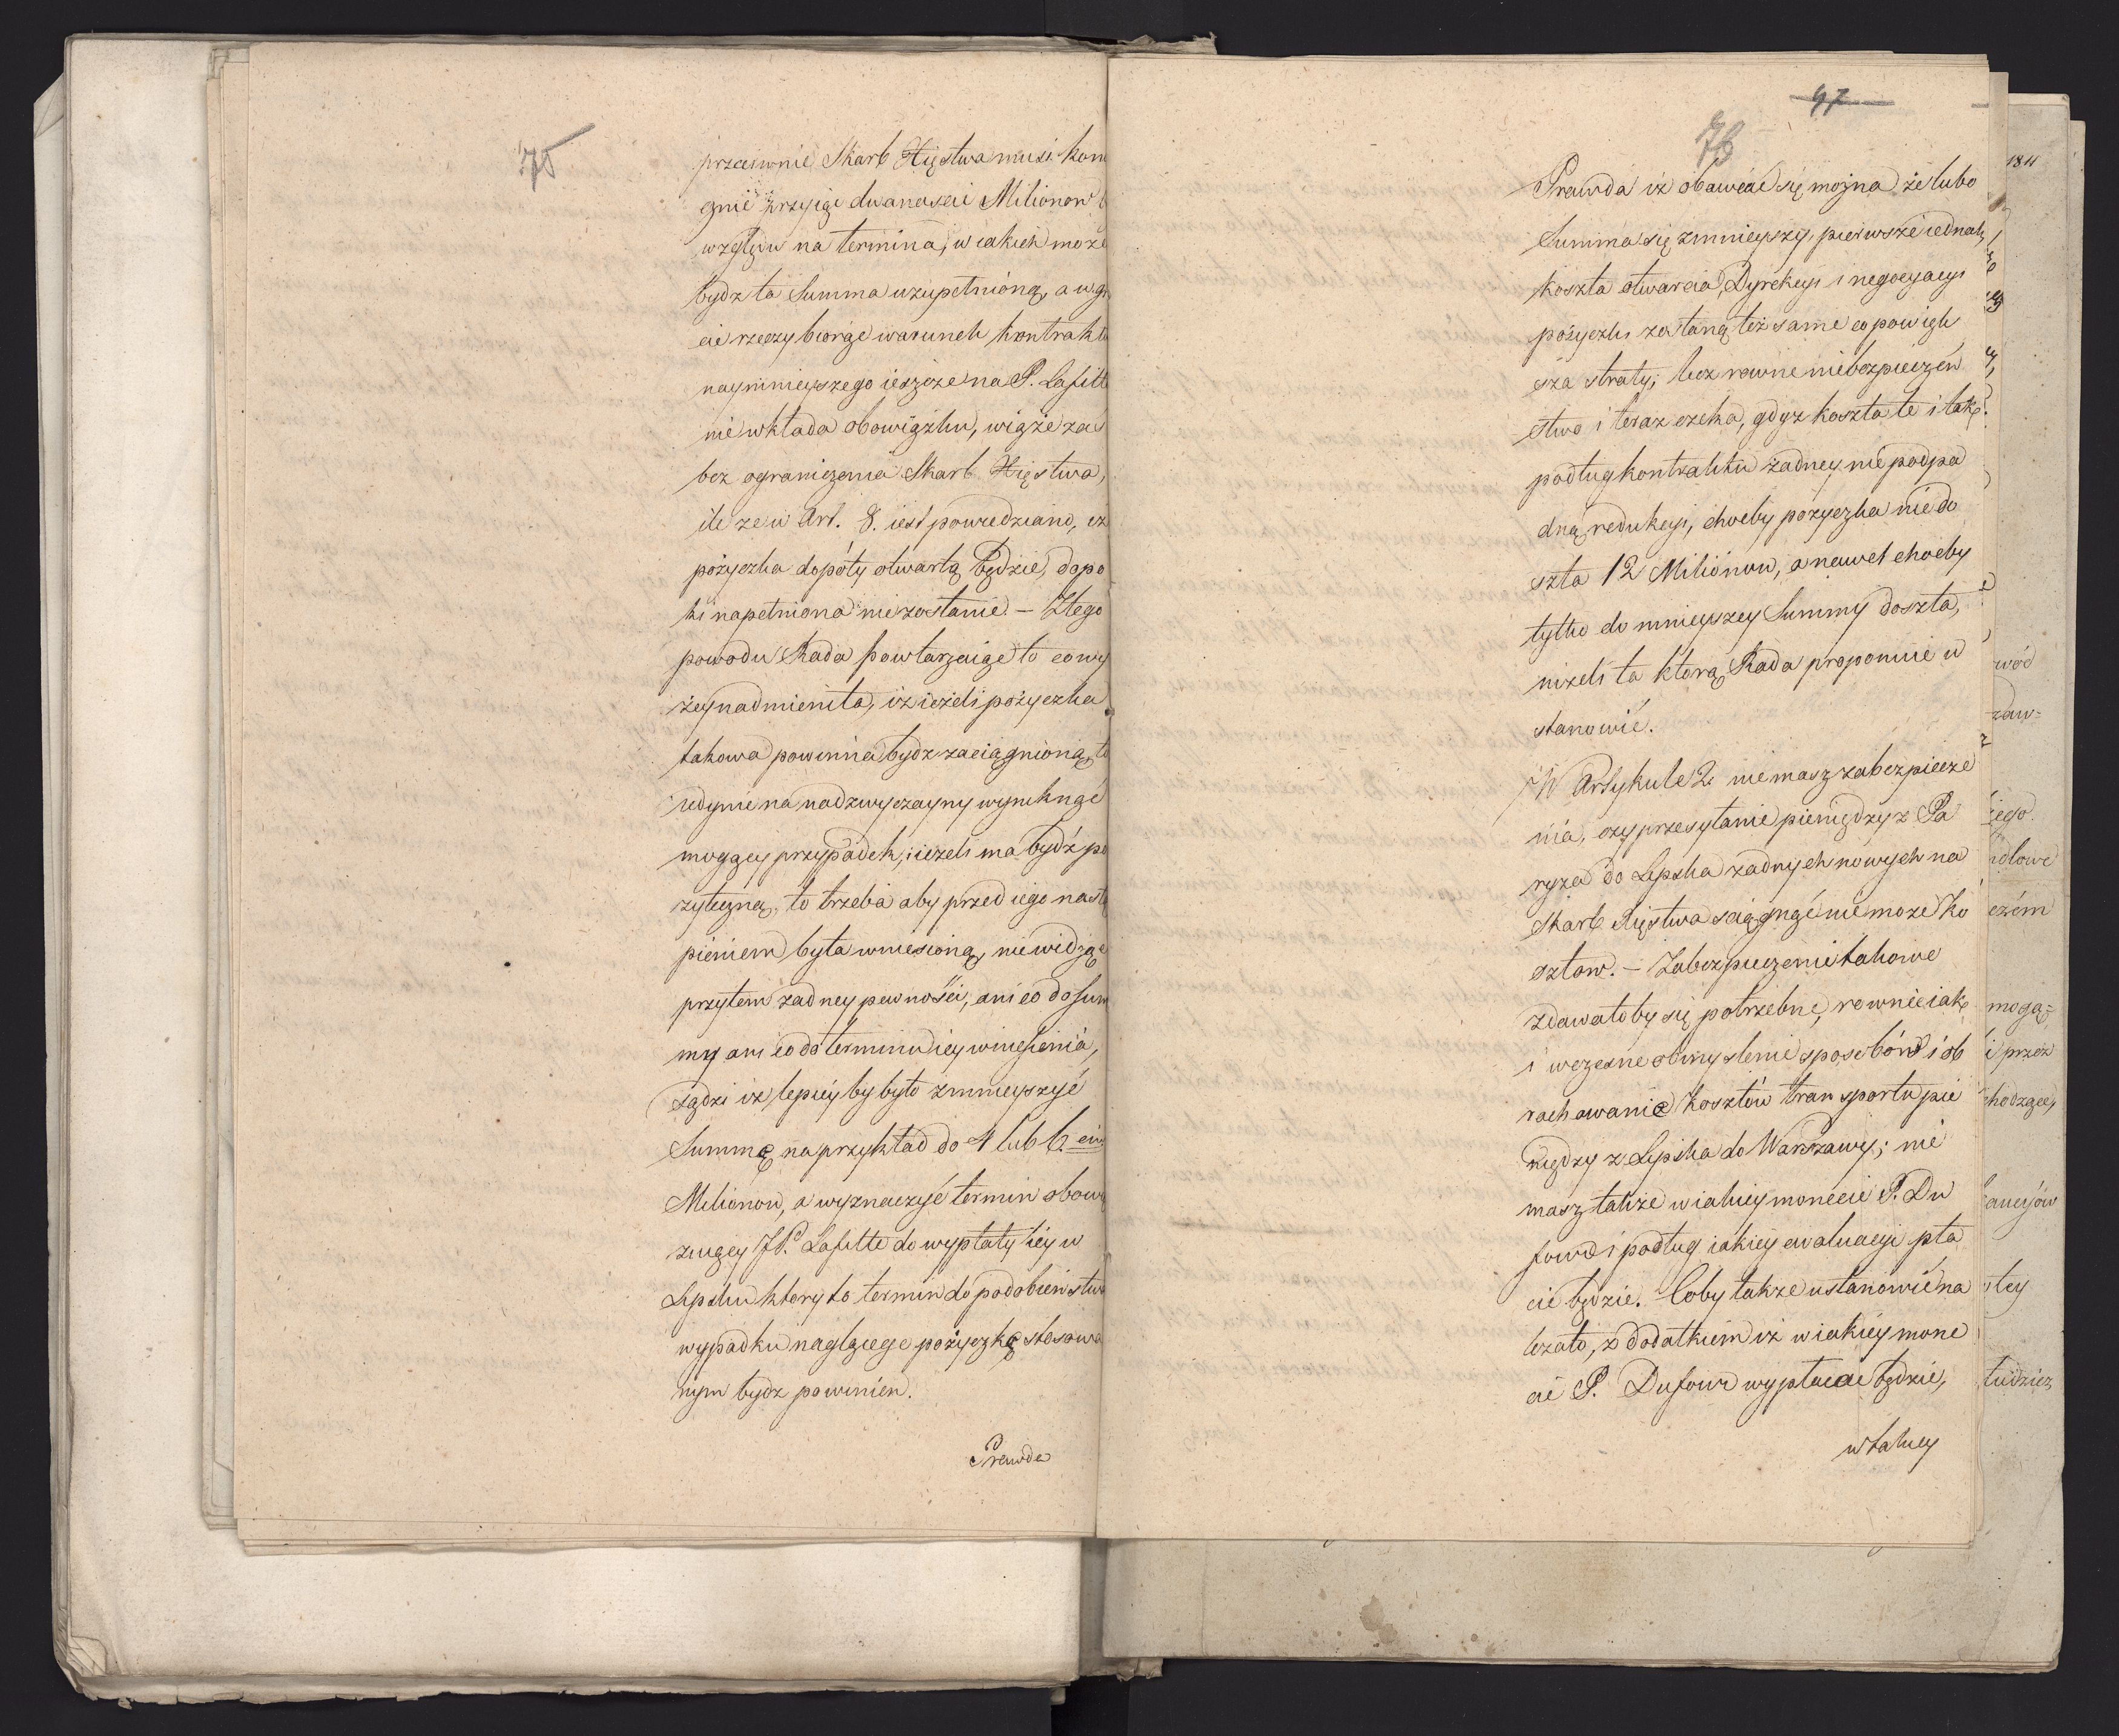 75
przeciwnie Skarb Xięstwa musi kon
gnie przyiąć dwanascie Milionow
względu na termina, w iakich może
bydz ta Summa uzupełnioną, a w gr
cie rzeczy biorąc warunek kontraktu
naymnieyszego ieszcze na P. Lafitt
nie wkłada obowiązku, wiąże zaś
bez ograniczenia Skarb Xięstwa,
ile ze w Art. 8. iest powiedziano, iż
pożyczka dopóty otwartą będzie, dopo
ki napełniona nie zostanie. – Z tego
powodu Rada powtarzaiąc to co wy
żey nadmieniła, iż ieżeli pożyczka
takowa powinna bydz zaciągnioną, to
iedynie na nadzwyczayny wyniknąć
mogący przypadek, i ieżeli ma bydź po
żyteczną, to trzeba aby przed iego nastą
pieniem była wniesioną, nie widząc
przytem żadney pewności, ani co do Sum
my ani co do terminu iey wniesienia,
sądzi iż lepiéy by było zmnieyszyć
Summę na przykład do 4 lub 6.ciu
Milionow, a wyznaczyć termin obowią
zuiący JP. Lafitte do wypłaty iey w
Lipsku który to termin do podobieństwa
wypadku naglącego pożyczkę stosowa
nym bydz powinien.
Prawda
97
76
Prawda iż obawiać się można że lubo
Summa się zmnieyszy, pierwsze iednak
koszta otwarcia, Dyrekcyi i negocyacyi
pożyczki zostaną też same co powięk
sza straty; lecz rowne niebezpieczeń
stwo i teraz czeka, gdyz koszta te i tak
podług kontraktu żadney nie podpa
dną redukcyi, choćby pożyczka nie do
szła 12 Milionow, a nawet choćby
tylko do mnieyszey Summy doszła,
niżeli ta którą Rada proponuie u
stanowić.
W Artykule 2. nie masz zabezpiecze
nia, czy przesyłanie pieniędzy z Pa
ryża do Lipska żadnych nowych na
Skarb Xięstwa sciągnąć nie może ko
sztow. – Zabezpieczenie takowe
zdawałoby się potrzebne, rownie iak
i wczesne obmyslenie sposobów i ob
rachowanie kosztów transportu pie
niędzy z Lipska do Warszawy; nie
masz także w iakiey monecie P. Du
four i podług iakiey ewaluacyi pła
cić będzie. Coby także ustanowić na
leżało, z dodatkiem iż w iakiéy mone
cie P. Dufour wypłacać będzie,
w takiey
1811
wód
zaw=
iego
dlowe
czém
mogą=
i przez
hodzące,
ancyów
tey
tudzież